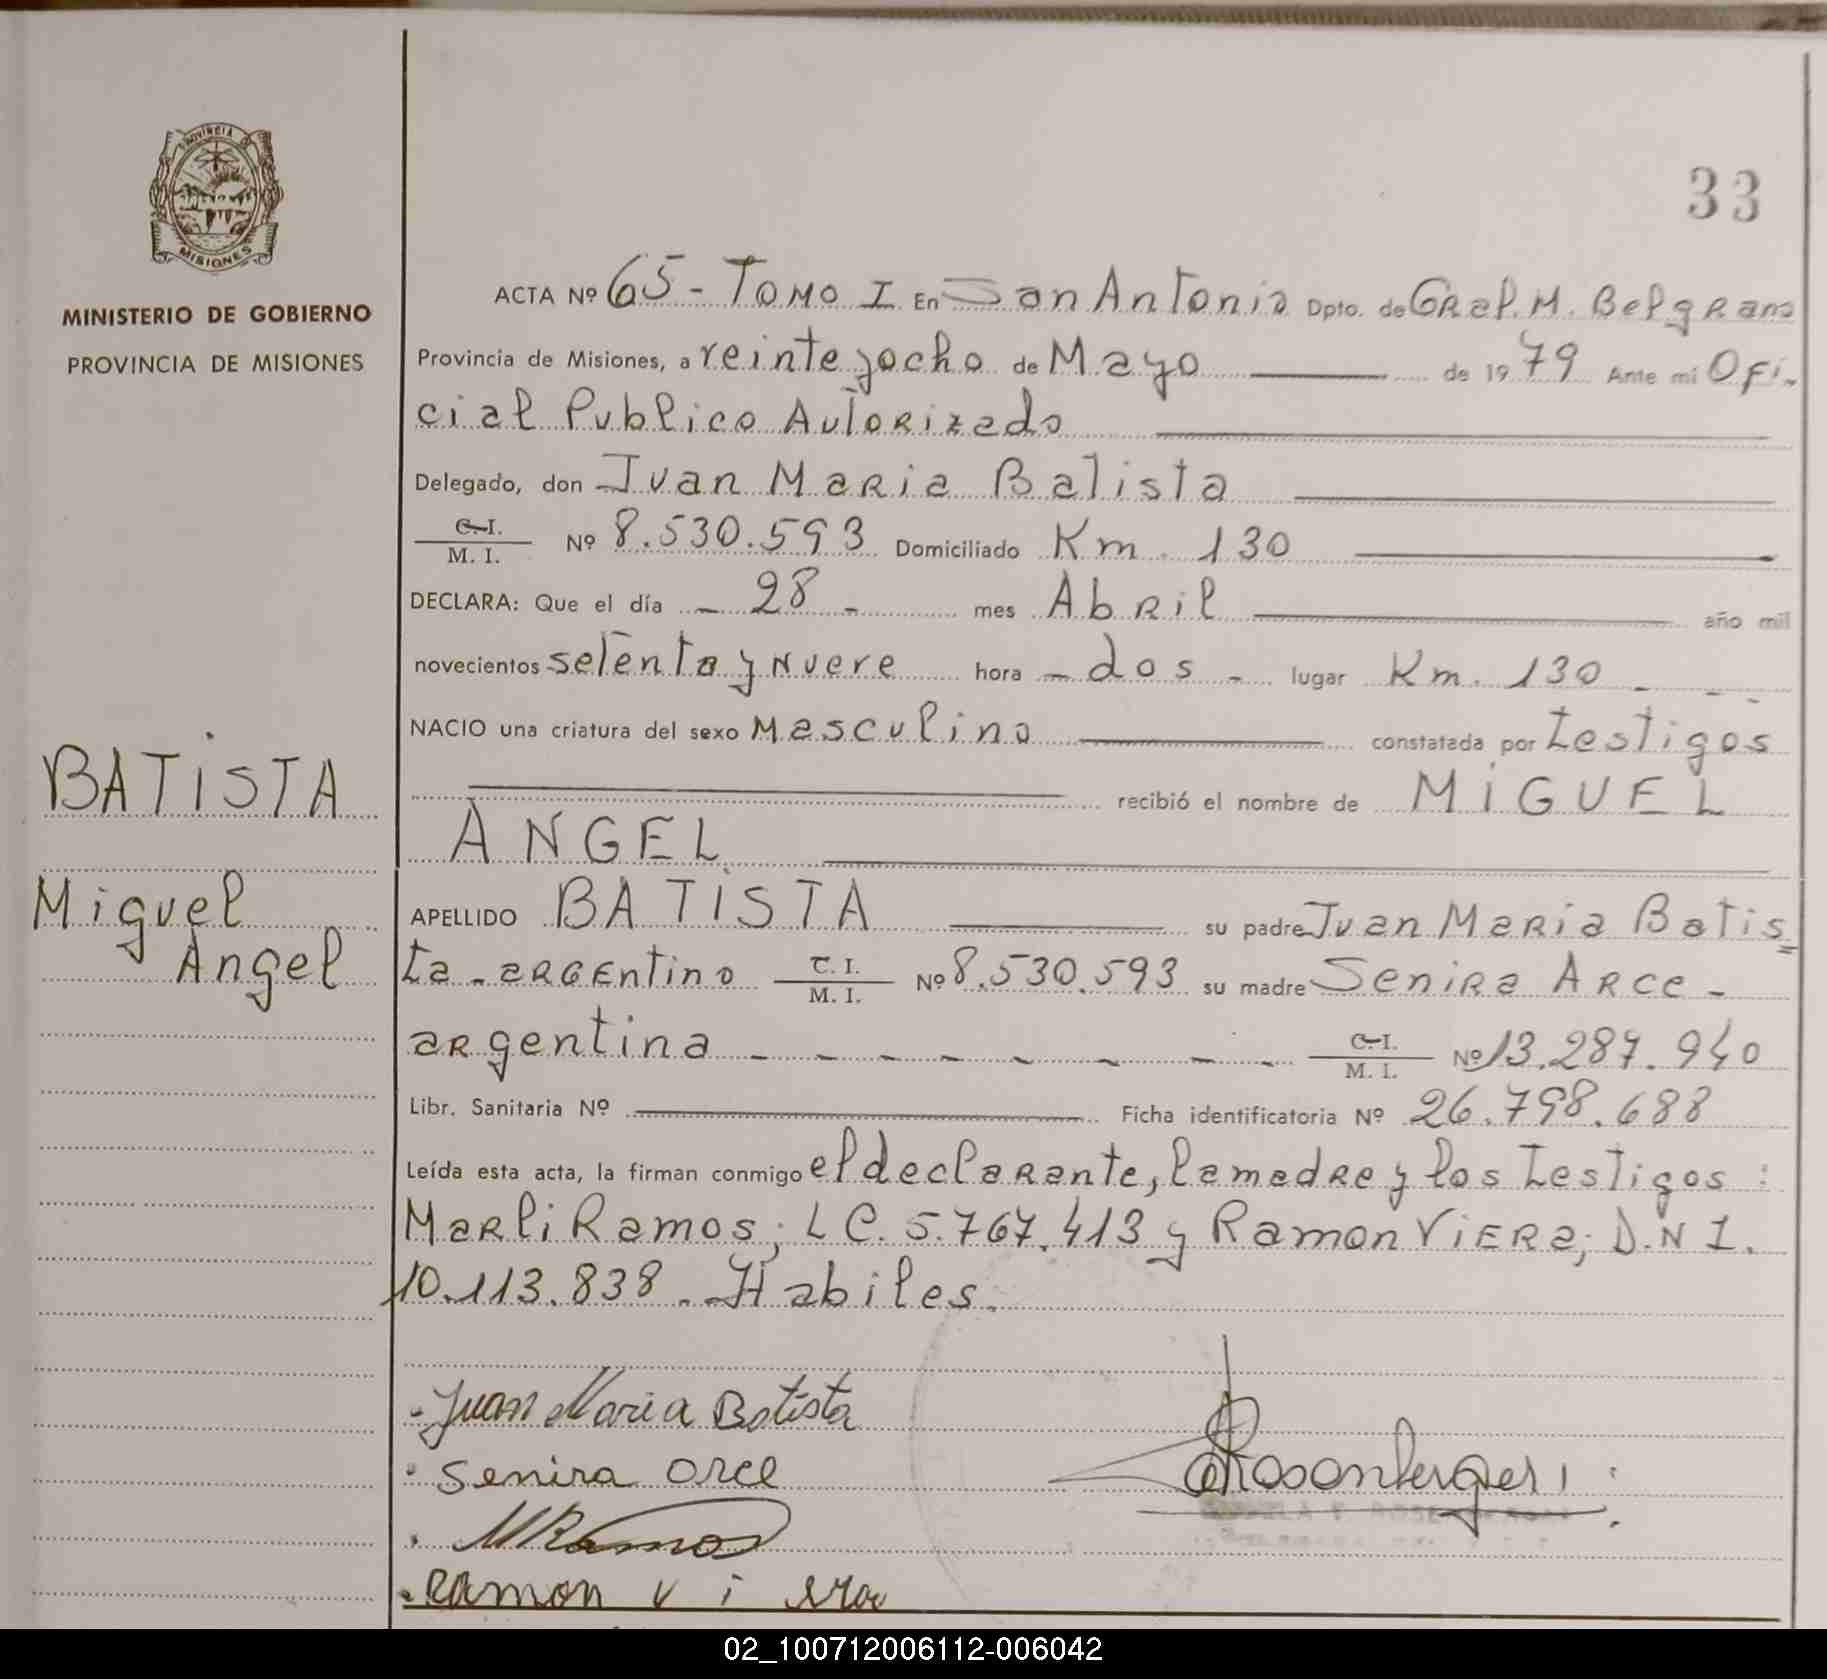 33
PROVINCIA
MISIONES
MINISTERIO DE GOBIERNO
PROVINCIA DE MISIONES
BATISTA
Miguel
Angel
ACTA Nº 65 - Tomo I En San Antonio Dpto. de Gral. M. Belgrano
Provincia de Misiones, a veinte y ocho de Mayo de 1979 Ante mi Ofi-
cial Publico Autorizado
Delegado, don Juan Maria Batista
C.I. / M. I. Nº 8.530.593 Domiciliado Km. 130
DECLARA: Que el día - 28 - mes Abril año mil
novecientos setenta y nueve hora - dos - lugar Km. 130 - - -
NACIO una criatura del sexo Masculino constatada por testigos
recibió el nombre de MIGUEL
ANGEL
APELLIDO BATISTA su padre Juan Maria Batis=
ta - argentino C. I. / M. I. Nº 8.530.593 su madre Senira Arce -
argentina - - - - - - - C.I. / M. I. Nº 13.287.940
Libr. Sanitaria Nº Ficha identificatoria Nº 26.798.688
Leída esta acta, la firman conmigo el declarante, la madre y los testigos:
Marli Ramos; L C. 5.767.413 y Ramon Viera; D.N I.
10.113.838. Habiles.
Juan Maria Batista
Senira Arce
MRamos
Ramon viera
Rosenberger
02_100712006112-006042